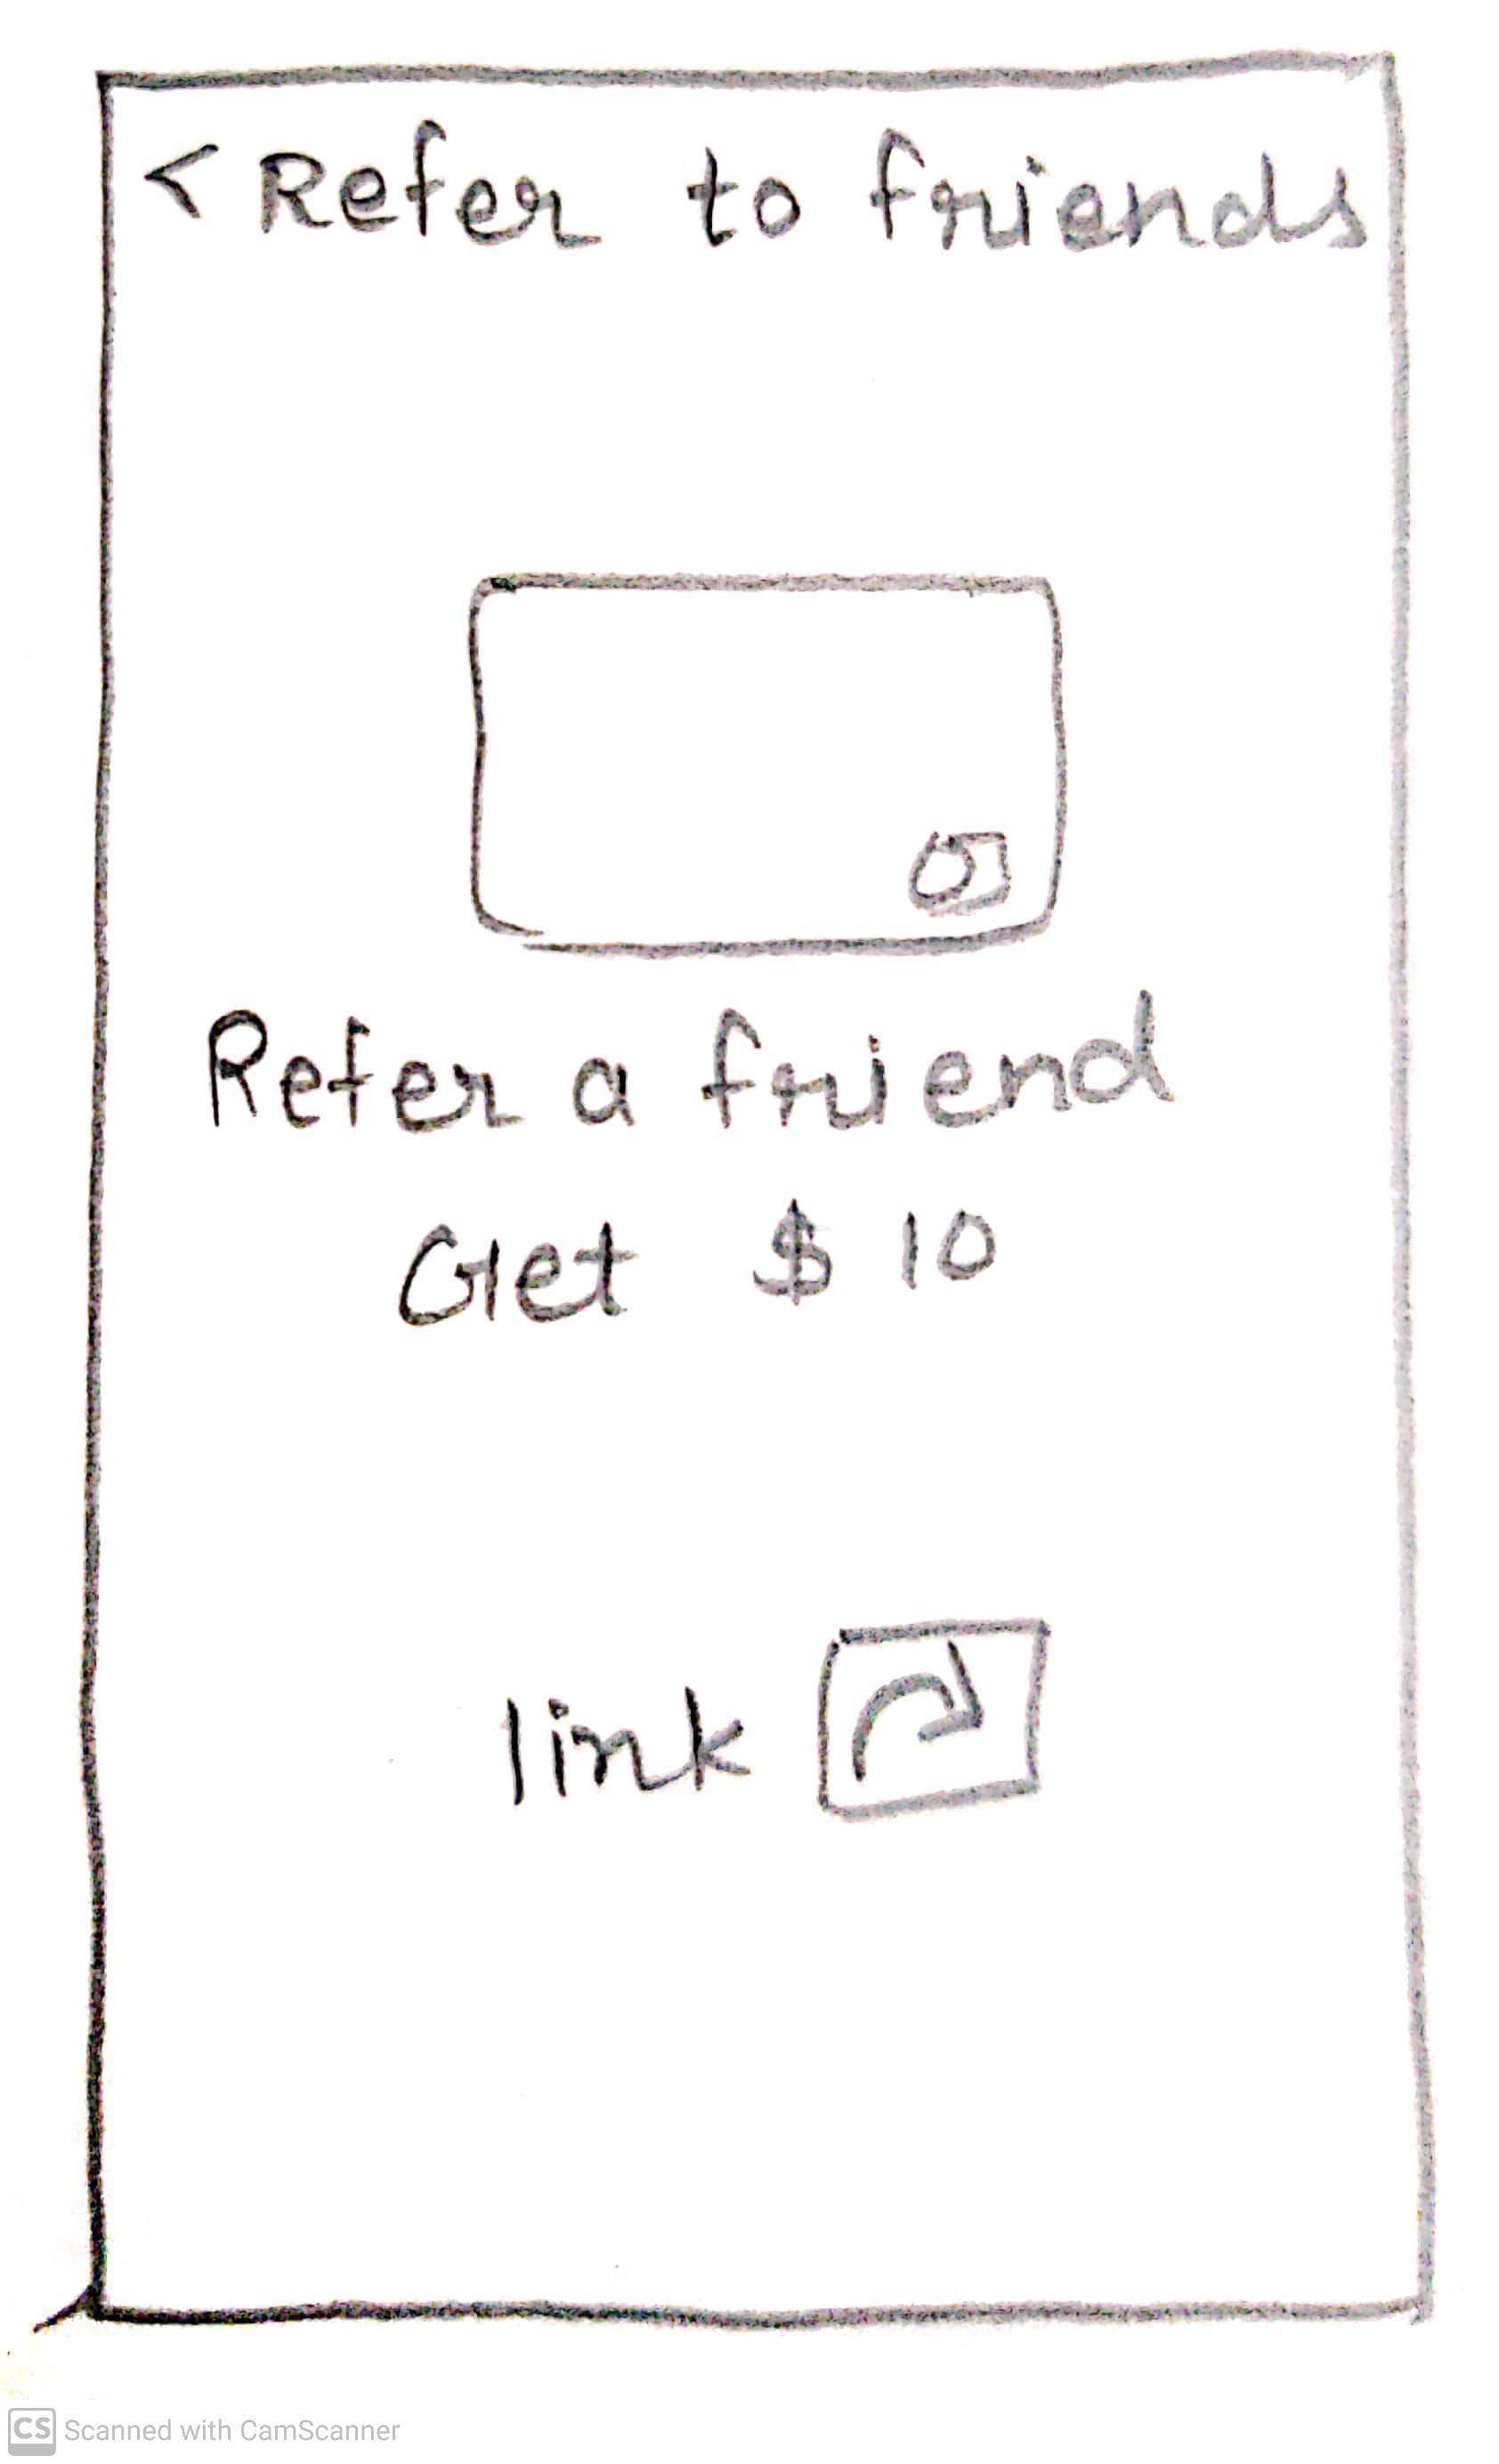 < Refer to friends
Refer a friend
Get $ 10
link
CS Scanned with CamScanner